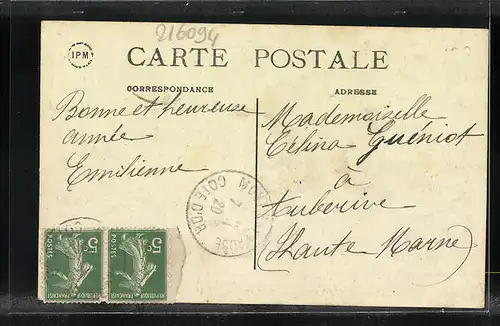 216094
IPM
CARTE POSTALE
CORRESPONDANCE
ADRESSE
Bonne et heureuse
année
Emilienne
Mademoiselle
Célina Guéniot
à
Auberive
(Haute Marne)
COTE D'OR
20
5c 5c
POSTES POSTES
REPUBLIQUE FRANÇAISE REPUBLIQUE FRANÇAISE